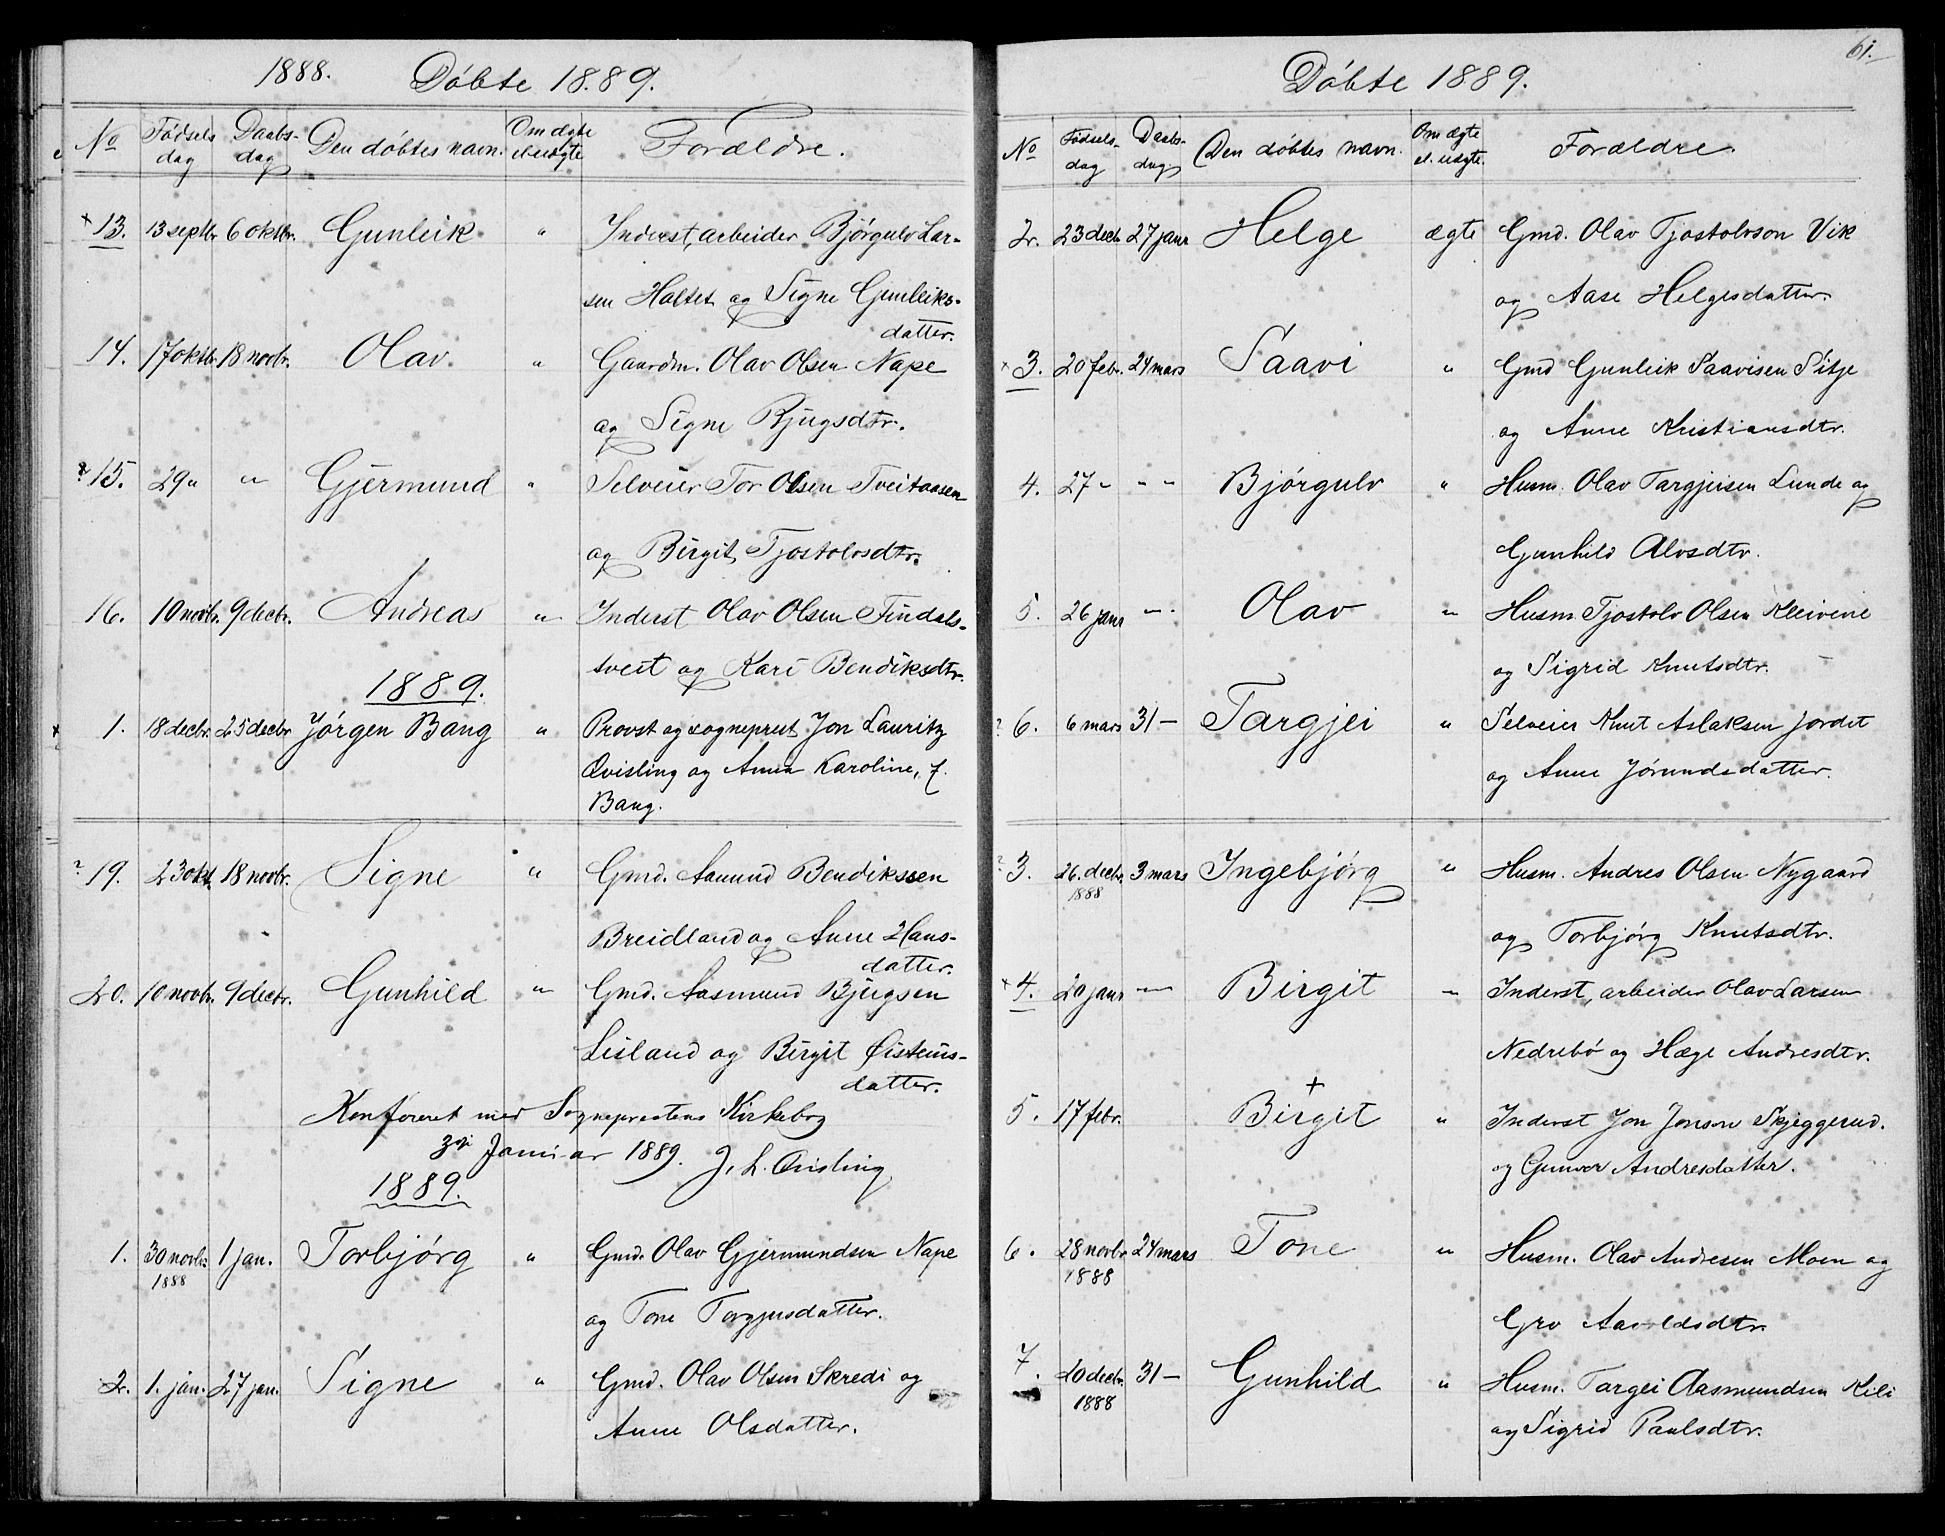 1888. Döbte 1889.
No Fødsels dag Daabs- dag Den döbtes navn. Om ægte el. uægte Forældre.
13. 13 septbr. 6 oktbr. Gunleik " Inderst, arbeider Bjørgulv Lar-
sen Haltet og Signe Gunleiks-
datter.
14. 17 oktbr. 18 novbr. Olav. " Gaardm. Olav Olsen Nape
og Signe Bjugsdtr.
15. 29 " " Gjermund " Selveier Tor Olsen Tveitaasen
og Birgit Tjostolvsdtr.
16. 10 novbr. 9 decbr. Andreas " Inderst Olav Olsen Findals-
tveit og Kari Bendiksdtr.
1889.
1. 18 decbr. 25 decbr Jörgen Bang " Provst og sogneprest Jon Lauritz
Qvisling og Anna Karoline, f.
Bang.
? 19. 23 okt. 18 novbr. Signe " Gmd. Aamund Bendikssen
Breidland og Anne Hans-
datter.
20. 10 novbr. 9 decbr. Gunhild " Gmd. Aasmund Bjugsen
Lisland og Birgit Øisteins-
datter.
Konfereret med Sogneprestens Kirkebog
Januar 1889. J. L. Qvisling
1889.
1. 30 novbr. 1 jan. Torbjörg " Gmd. Olav Gjermundsen Nape
1888
og Tone Torgjusdatter.
2. 1. jan. 27 jan. Signe " Gmd. Olav Olsen Skredi og
Anne Olsdatter.
61.
Döbte 1889.
No Fødsels- dag Daabs- dag Den döbtes navn. Om ægte el. uægte. Forældre.
2. 23 decbr 27 janr Helge ægte Gmd. Olav Tjostolvson Vik
og Aase Helgesdatter.
3. 20 febr. 24 mars Saavi " Gmd Gunleik Saavisen Sitje
og Anne Kristiansdtr.
4. 27 " " " Bjørgulv " Husm. Olav Targjeisen Lunde og
Gunhild Alvsdtr.
5. 26 janr " Olav " Husm Tjostolv Olsen Kleivene
og Sigrid Knutsdtr.
? 6. 6 mars 31 – Targjei " Selveier Knut Aslaksen Jordet
og Anne Jörundsdatter.
? 3. 26. decbr. 3 mars Ingebjörg " Husm. Andres Olsen Nygaard
1888
og Torbjörg Knutsdtr.
4. 20 janr " Birgit " Inderst, arbeider Olav Larsen
Nedrebö og Hæge Andresdtr.
+
5. 17 febr. Birgit " Inderst Jon Jonson Skjeggerud.
og Gunvor Andresdatter.
6. 28 novbr 24 mars Tone " Husm. Olav Andresen Moen og
1888
Gro
7. 20 decbr. 31 – Gunhild " Husm. Targei Aasmundsen Kili
1888
og Sigrid Paulsdtr.